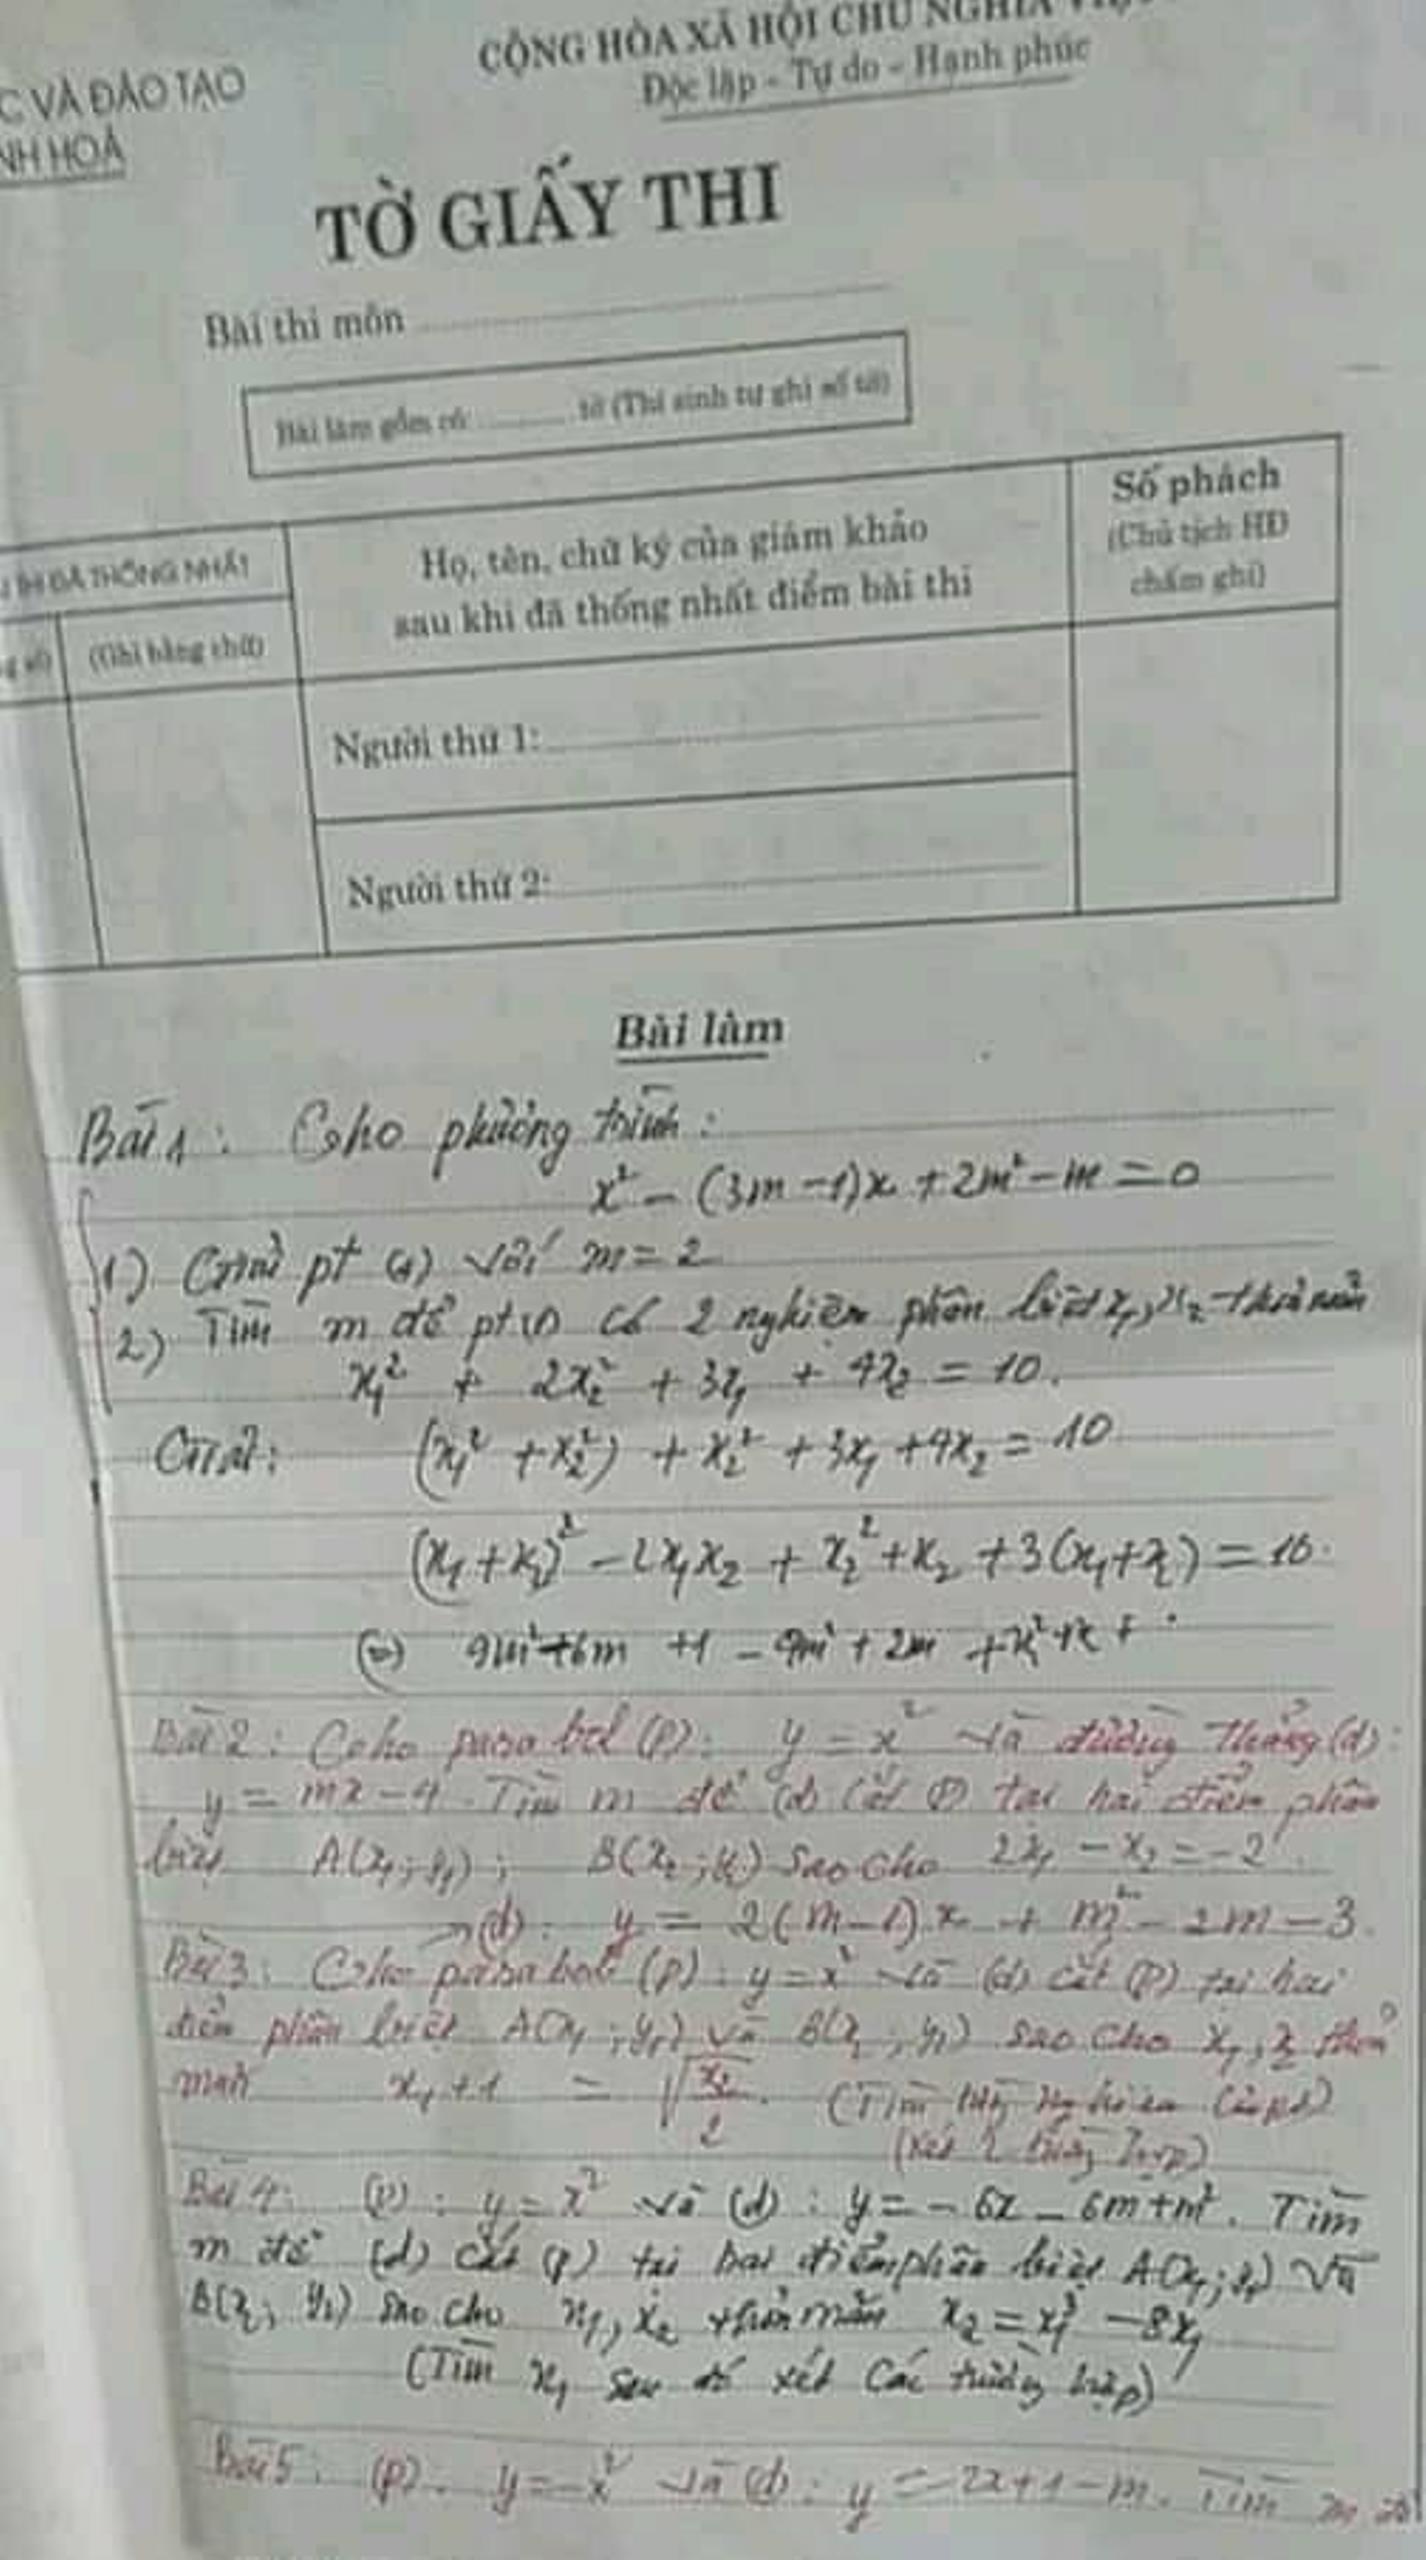 CỘNG HÒA XÃ HỘI CHỦ NGHĨA
C VÀ ĐÀO TẠO
Độc lập - Tự do - Hạnh phúc
NH HOÁ
TỜ GIẤY THI
Bài thi môn
Bài làm gồm có: tờ (Thí sinh tự ghi số tờ)
ĐÃ THỐNG NHẤT
Họ, tên, chữ ký của giám khảo
sau khi đã thống nhất điểm bài thi
Số phách
(Chủ tịch HĐ
chấm ghi)
(Ghi bằng chữ)
Người thứ 1:
Người thứ 2:
Bài làm
Bài 1: Cho phương trình:
x² - (3m - 1)x + 2m² - m = 0
1) Giải pt (1) với m = 2
2) Tìm m để pt (1) có 2 nghiệm phân biệt x₁, x₂ thỏa mãn
x₁² + 2x₂² + 3x₁ + 4x₂ = 10.
Giải: (x₁² + x₂²) + x₂² + 3x₁ + 4x₂ = 10
(x₁ + x₂)² - 2x₁x₂ + x₂² + x₂ + 3(x₁ + x₂) = 10
Bài 2: Cho parabol (P): y = x² và đường thẳng (d):
y = mx - 4. Tìm m để (d) cắt (P) tại hai điểm phân
biệt A(x₁; y₁); B(x₂; y₂) sao cho 2x₁ - x₂ = -2.
(d): y = 2(m - 1)x + m² - 2m - 3.
Bài 3: Cho parabol (P): y = x² và (d) cắt (P) tại hai
điểm phân biệt A(x₁; y₁) và B(x₂; y₂) sao cho x₁, x₂ thỏa
mãn x₁ + 1 = √x₂/2. (Tìm nghiệm của pt)
(Xét 2 trường hợp)
Bài 4: (P): y = x² và (d): y = -6x - 6m + m². Tìm
m để (d) cắt (P) tại hai điểm phân biệt A(x₁; y₁) và
B(x₂; y₂) sao cho x₁, x₂ thỏa mãn x₂ = x₁³ - 8x₁
(Tìm x₁ sau đó xét các trường hợp)
Bài 5: (P): y = x² và (d): y = 2x + 1 - m. Tìm m để